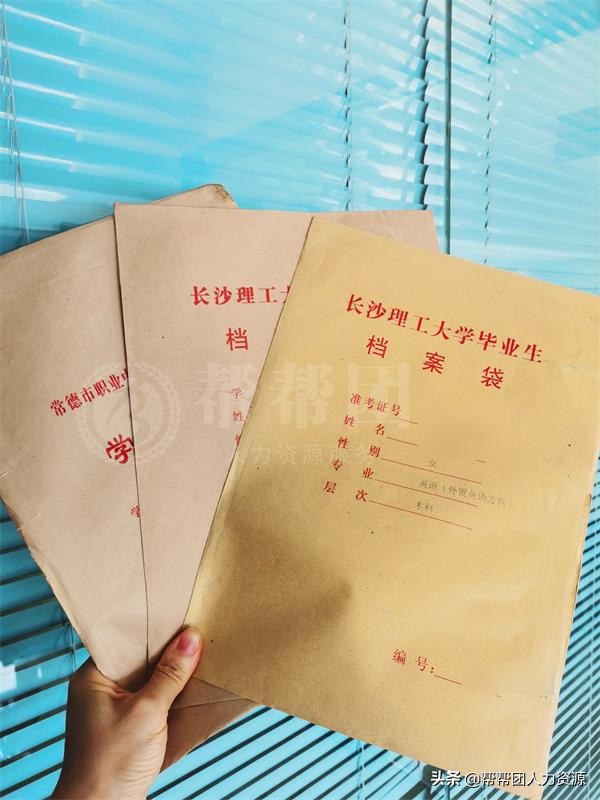 常德市职业中
学
学
长沙理工大
档
学
姓
长沙理工大学毕业生
档案袋
准考证号
姓名
性别 女
专业 英语(外贸英语方向)
层次 本科
编号:
帮帮团
人力资源服务
头条 @帮帮团人力资源